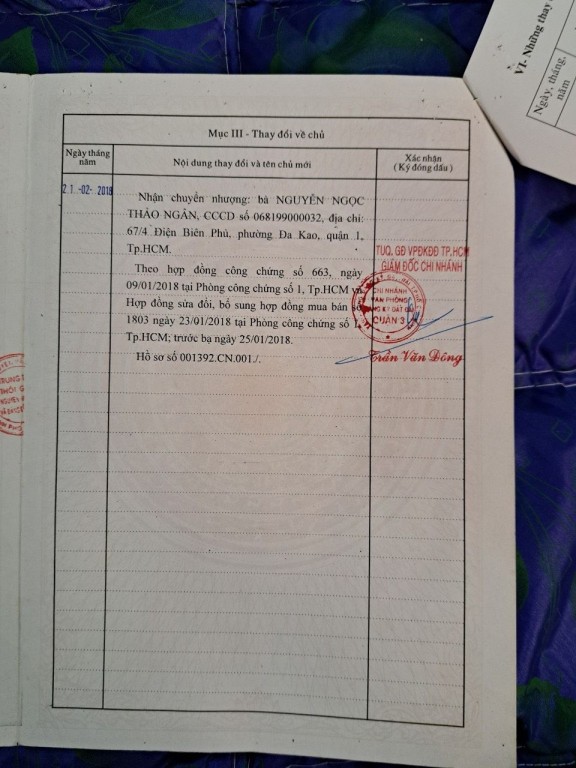 VI- Những thay
Ngày, tháng,
năm
Mục III - Thay đổi về chủ
Ngày tháng năm
Nội dung thay đổi và tên chủ mới
Xác nhận
( Ký đóng dấu )
21 -02- 2018
Nhận chuyển nhượng: bà NGUYỄN NGỌC
THẢO NGÂN, CCCD số 068199000032, địa chỉ:
67/4 Điện Biên Phủ, phường Đa Kao, quận 1,
Tp.HCM.
Theo hợp đồng công chứng số 663, ngày
09/01/2018 tại Phòng công chứng số 1, Tp.HCM và
Hợp đồng sửa đổi, bổ sung hợp đồng mua bán số
1803 ngày 23/01/2018 tại Phòng công chứng số 1,
Tp.HCM; trước bạ ngày 25/01/2018.
Hồ sơ số 001392.CN.001./.
TUQ. GĐ VPĐKĐĐ TP.HCM
GIÁM ĐỐC CHI NHÁNH
CHI NHÁNH
VĂN PHÒNG
ĐĂNG KÝ ĐẤT ĐAI
QUẬN 3
Trần Văn Đông